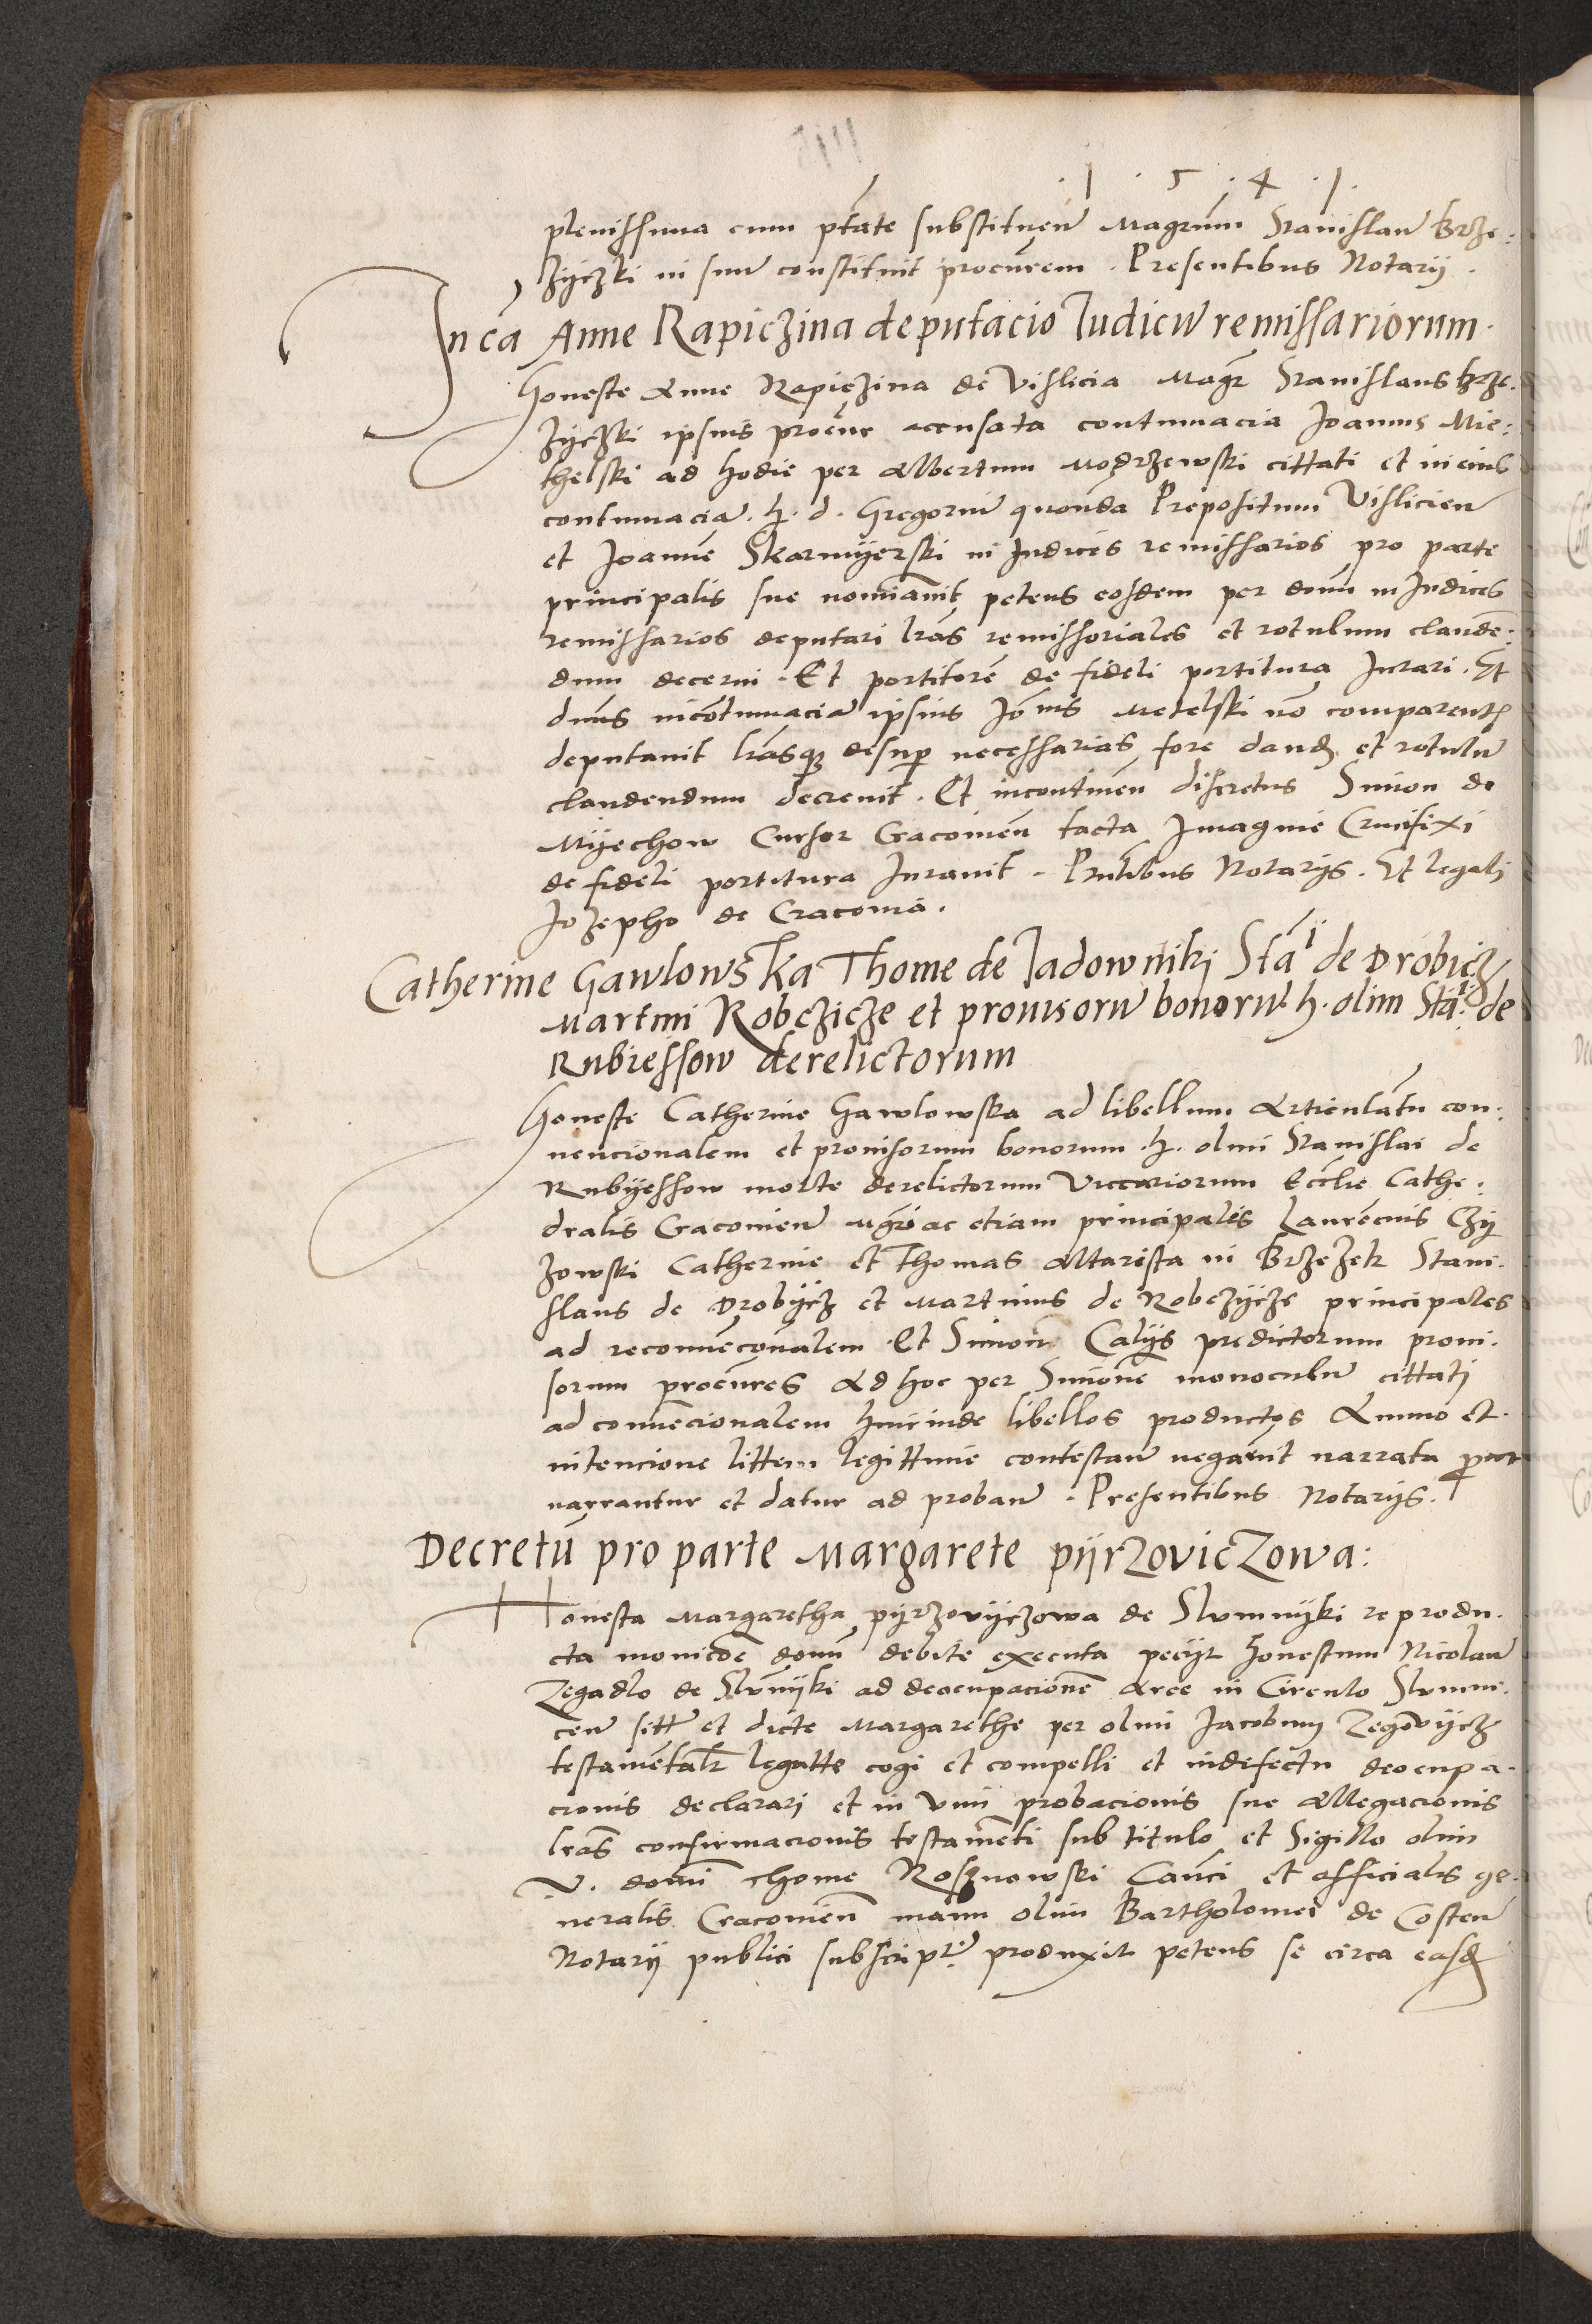 · 1 · 5 · 4 · 1 ·
plenissima cum ptāte substituen̄ Magrum̄ Stanislau̅ Brze:
zÿczki in suu̅ constituit procūrem · Presentibus Notarÿ ·
In cā Anne Rapiczina deputacio Iudicu̅ remissariorum ·
Honeste Anne Rapiczina de Vislicia Magr̄ Stanislaus brze:
zÿczki ipsius procūr accusata contumacia Joannis Mie:
thelski ad hodie per Albertum Modrzewski cittati et in eius
contumacia̅ . h . d . Gregoriu̅ quonda̅ Prepositum Vislicien̅
et Joanne̅ Skarmÿerski in Judices remissarios pro parte
principalis sue nomiāuit petens eosdem per dnūm in Judices
remissarios deputari lrās remissoriales et rotulum clauden̅:
dum decerni · Et portitore̅ de fideli portitura Jurari . Et
dnūs in contumacia̅ ipsius Joan̅is Metelski no̅ comparent̅
deputauit lrāsq desup necessarias fore dand et rotulu̅
claudendum decreuit . Et incontinen̅ discretus Simon de
Mÿechow Cursor Cracouien̅ tacta Imagine Crucifixi
de fideli portitura Jurauit . Pn̅tibus Notarÿs . Et legali
Jozepho de Cracouia .
Catherine Gawlowska Thome de Jadowniki Stāi de Drobicz
Martini Robczicze et prouisoru̅ bonoru̅ . h . olim Stāi : de
Rubiessow derelictorum
Honeste Catherine Gawlowska ad libellum Articulātu̅ con:
uencionalem et prouisorum bonorum . h . olim Stanislai de
Rubÿessow morte derelictorum Viccariorum Eccl̅ie Cathe:
dralis Cracouien̅ Mgr̅i ac etiam principalis Laurencius Czÿ
zowski Catherine et Thomas Altarista in Brzezek Stani:
slaus de Drobÿcz et Martinus de Robczÿcze principales
ad reconuēcōnalem . Et Simon Calÿs predictorum proui:
sorum procūres Ad hoc per Simone̅ monoculu̅ cittati
ad conuēcionalem hincinde libellos productos Animo et
intencione littem legittime contestan̅ negarūt narrata put
narrantur et datur ad proban̅ . Presentibus Notarÿs .
Decretu̅ pro parte Margarete pÿrzoviczowa :
Honesta Margaretha pÿrzovÿczowa de Slomnÿki reprodu:
cta monicōe dn̅i debite executa petÿt honestum Nicolau̅
Zegadlo de Slomnÿki ad deocupacione̅ Aree in Circulo Slomni:
cen̅ sitt̅ et dicte Margarethe per olim Jacobum Zegōvÿcz
testamentalr̅ legatte cogi et compelli et in defectu deocupa:
cionis declarari et in vim probacionis sue Allegacionis
lrās confirmacionis testamēti sub titulo et Sigillo olim
V . domi̅ Thome Rosznowski Can̅ci et officialis ge:
neralis Cracouien̅ manu olim Bartholomei de Costen̅
Notarÿ publici subscript̅ . produxit petens se circa easd